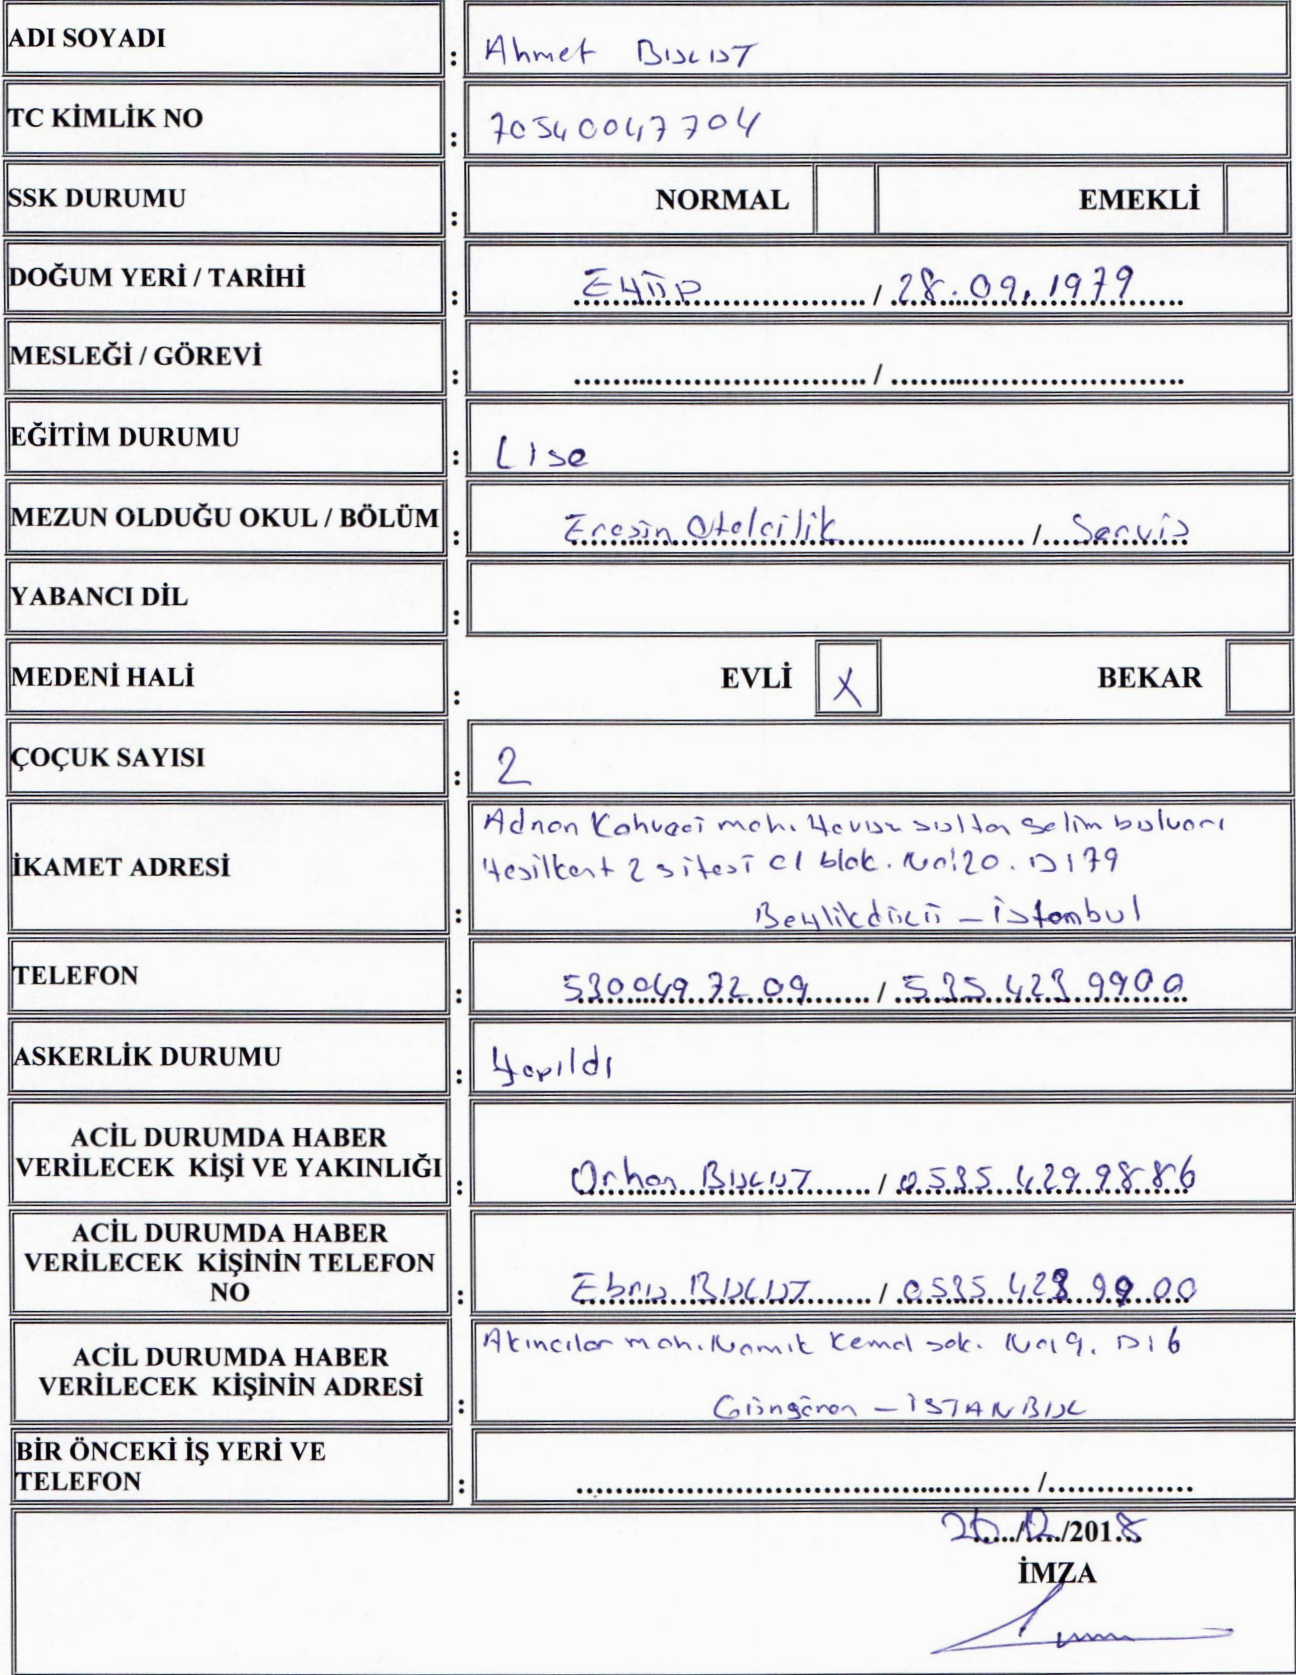 ADI SOYADI : Ahmet BULUT
TC KİMLİK NO : 70540047704
SSK DURUMU : NORMAL EMEKLİ
DOĞUM YERİ / TARİHİ : EYÜP / 28.09.1979
MESLEĞİ / GÖREVİ : ........ / ........
EĞİTİM DURUMU : Lise
MEZUN OLDUĞU OKUL / BÖLÜM : Eresin Otelcilik / Servis
YABANCI DİL :
MEDENİ HALİ : EVLİ X BEKAR
ÇOÇUK SAYISI : 2
İKAMET ADRESİ :
Adnan Kahveci mah. Yavuz sultan Selim bulvarı
Yesilkent 2 sitesi c1 blok. No:20. D:79
Beylikdüzü - istanbul
TELEFON : 530 049 72 09 / 535 423 9900
ASKERLİK DURUMU : Yapıldı
ACİL DURUMDA HABER
VERİLECEK KİŞİ VE YAKINLIĞI : Orhan BULUT / 0535 429 98 86
ACİL DURUMDA HABER
VERİLECEK KİŞİNİN TELEFON
NO : Ebru BULUT / 0535 423 99 00
ACİL DURUMDA HABER
VERİLECEK KİŞİNİN ADRESİ :
Akıncılar mah. Namık Kemal sok. No:9. D:6
Güngören - İSTANBUL
BİR ÖNCEKİ İŞ YERİ VE
TELEFON : ........ / ........
26/12/2018
İMZA